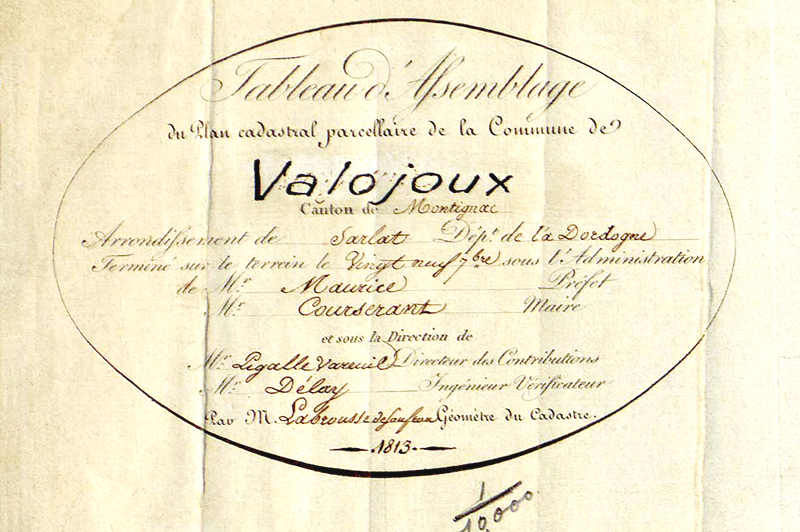 Tableau d'Assemblage
du Plan cadastral parcellaire de la Commune de
Valojoux
Canton de Montignac
Arrondissement de Sarlat Dépt. de la Dordogne
Terminé sur le terrain le Vingt neuf 7bre sous l'Administration
de Mr Maurice Préfet
Mr Courserant Maire
et sous la Direction de
Mr Pigalle Vareuil Directeur des Contributions
Mr Délay Ingénieur Vérificateur
Par M. Labrousse Géomètre du Cadastre.
1813.
1
10,000